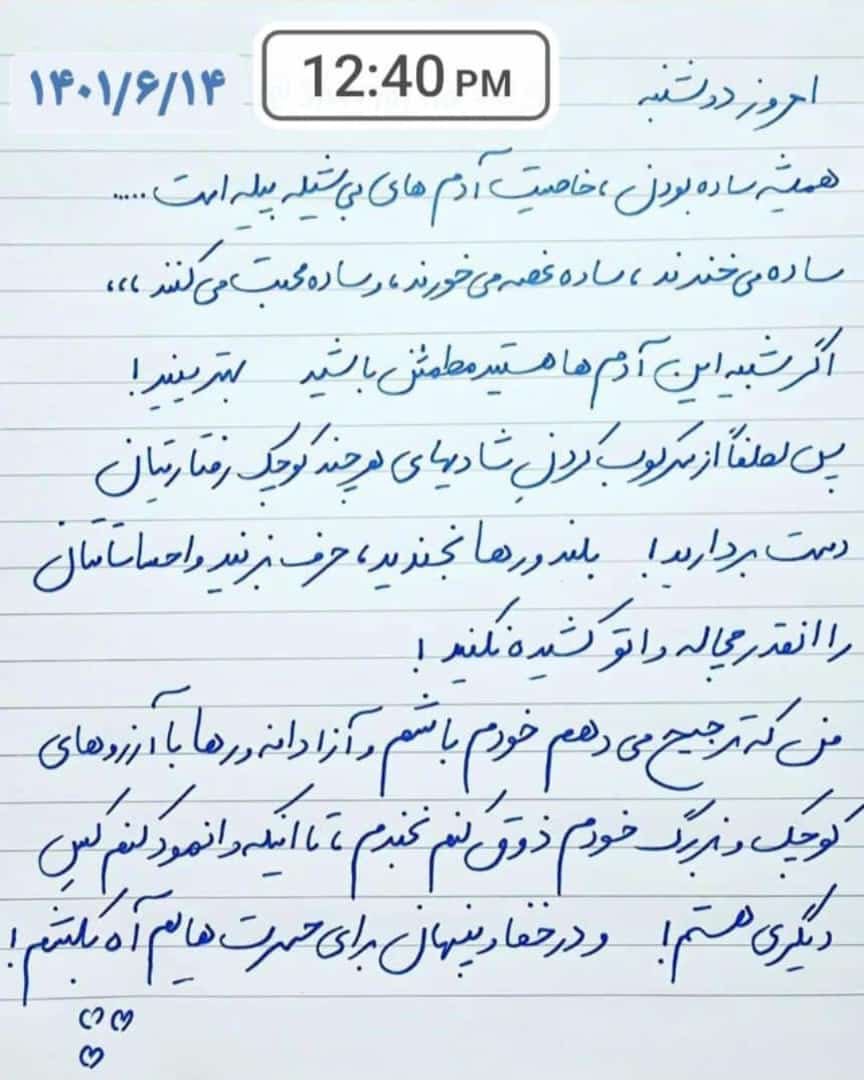 ۱۴۰۱/۶/۱۴
12:40 PM
امروز دوشنبه
همیشه ساده بودن، خاصیت آدم های بی شیله پیله است .....
ساده می خندند، ساده غصه می خورند، و ساده محبت می کنند ،،،
اگر شبیه این آدم ها هستید مطمئن باشید بهترینید!
پس لطفاً از سرکوب کردنِ شادیهای هر چند کوچک رفتارتیان
دست بردارید! بلند و رها بخندید، حرف بزنید و احساساتتان
را انقدر مچاله و اتو کشیده نکنید!
من که ترجیح می دهم خودم باشم و آزادانه و رها با آرزوهای
کوچک و بزرگ خودم ذوق کنم بخندم، تا اینکه وانمود کنم کسِ
دیگری هستم! و در خفا و پنهان برای حسرت هایم آه بکشم!